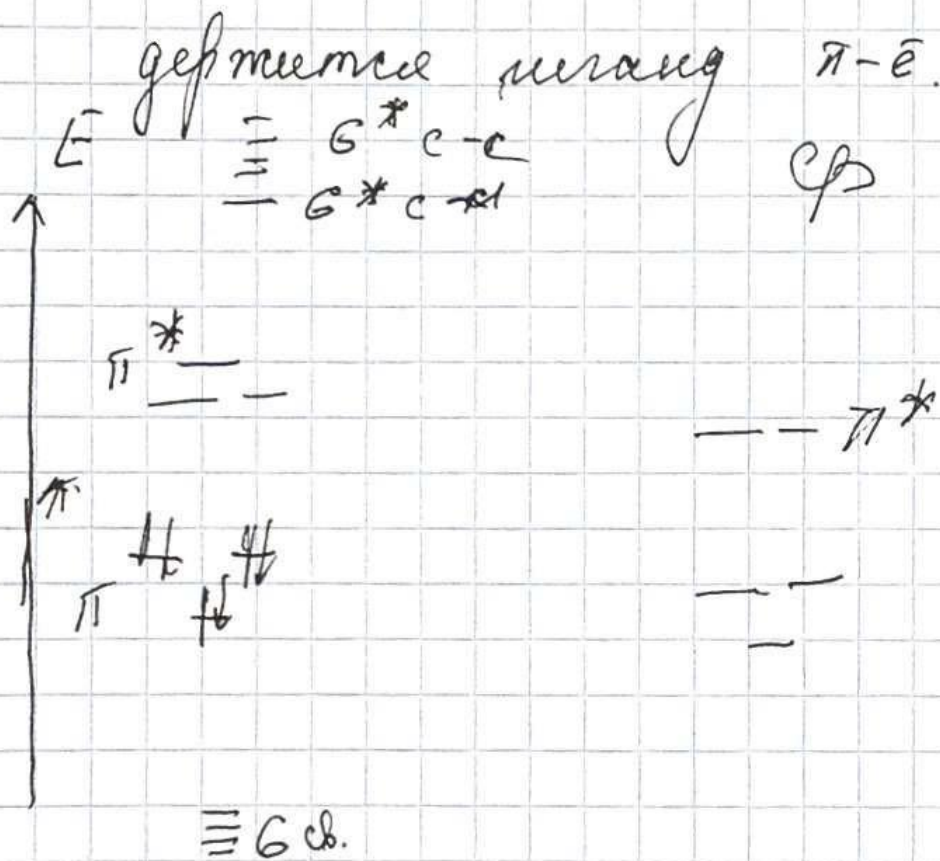 держится лиганд π-ē.
E σ* c-c
σ* c-H Cp
π*
π*
π
π
σ св.